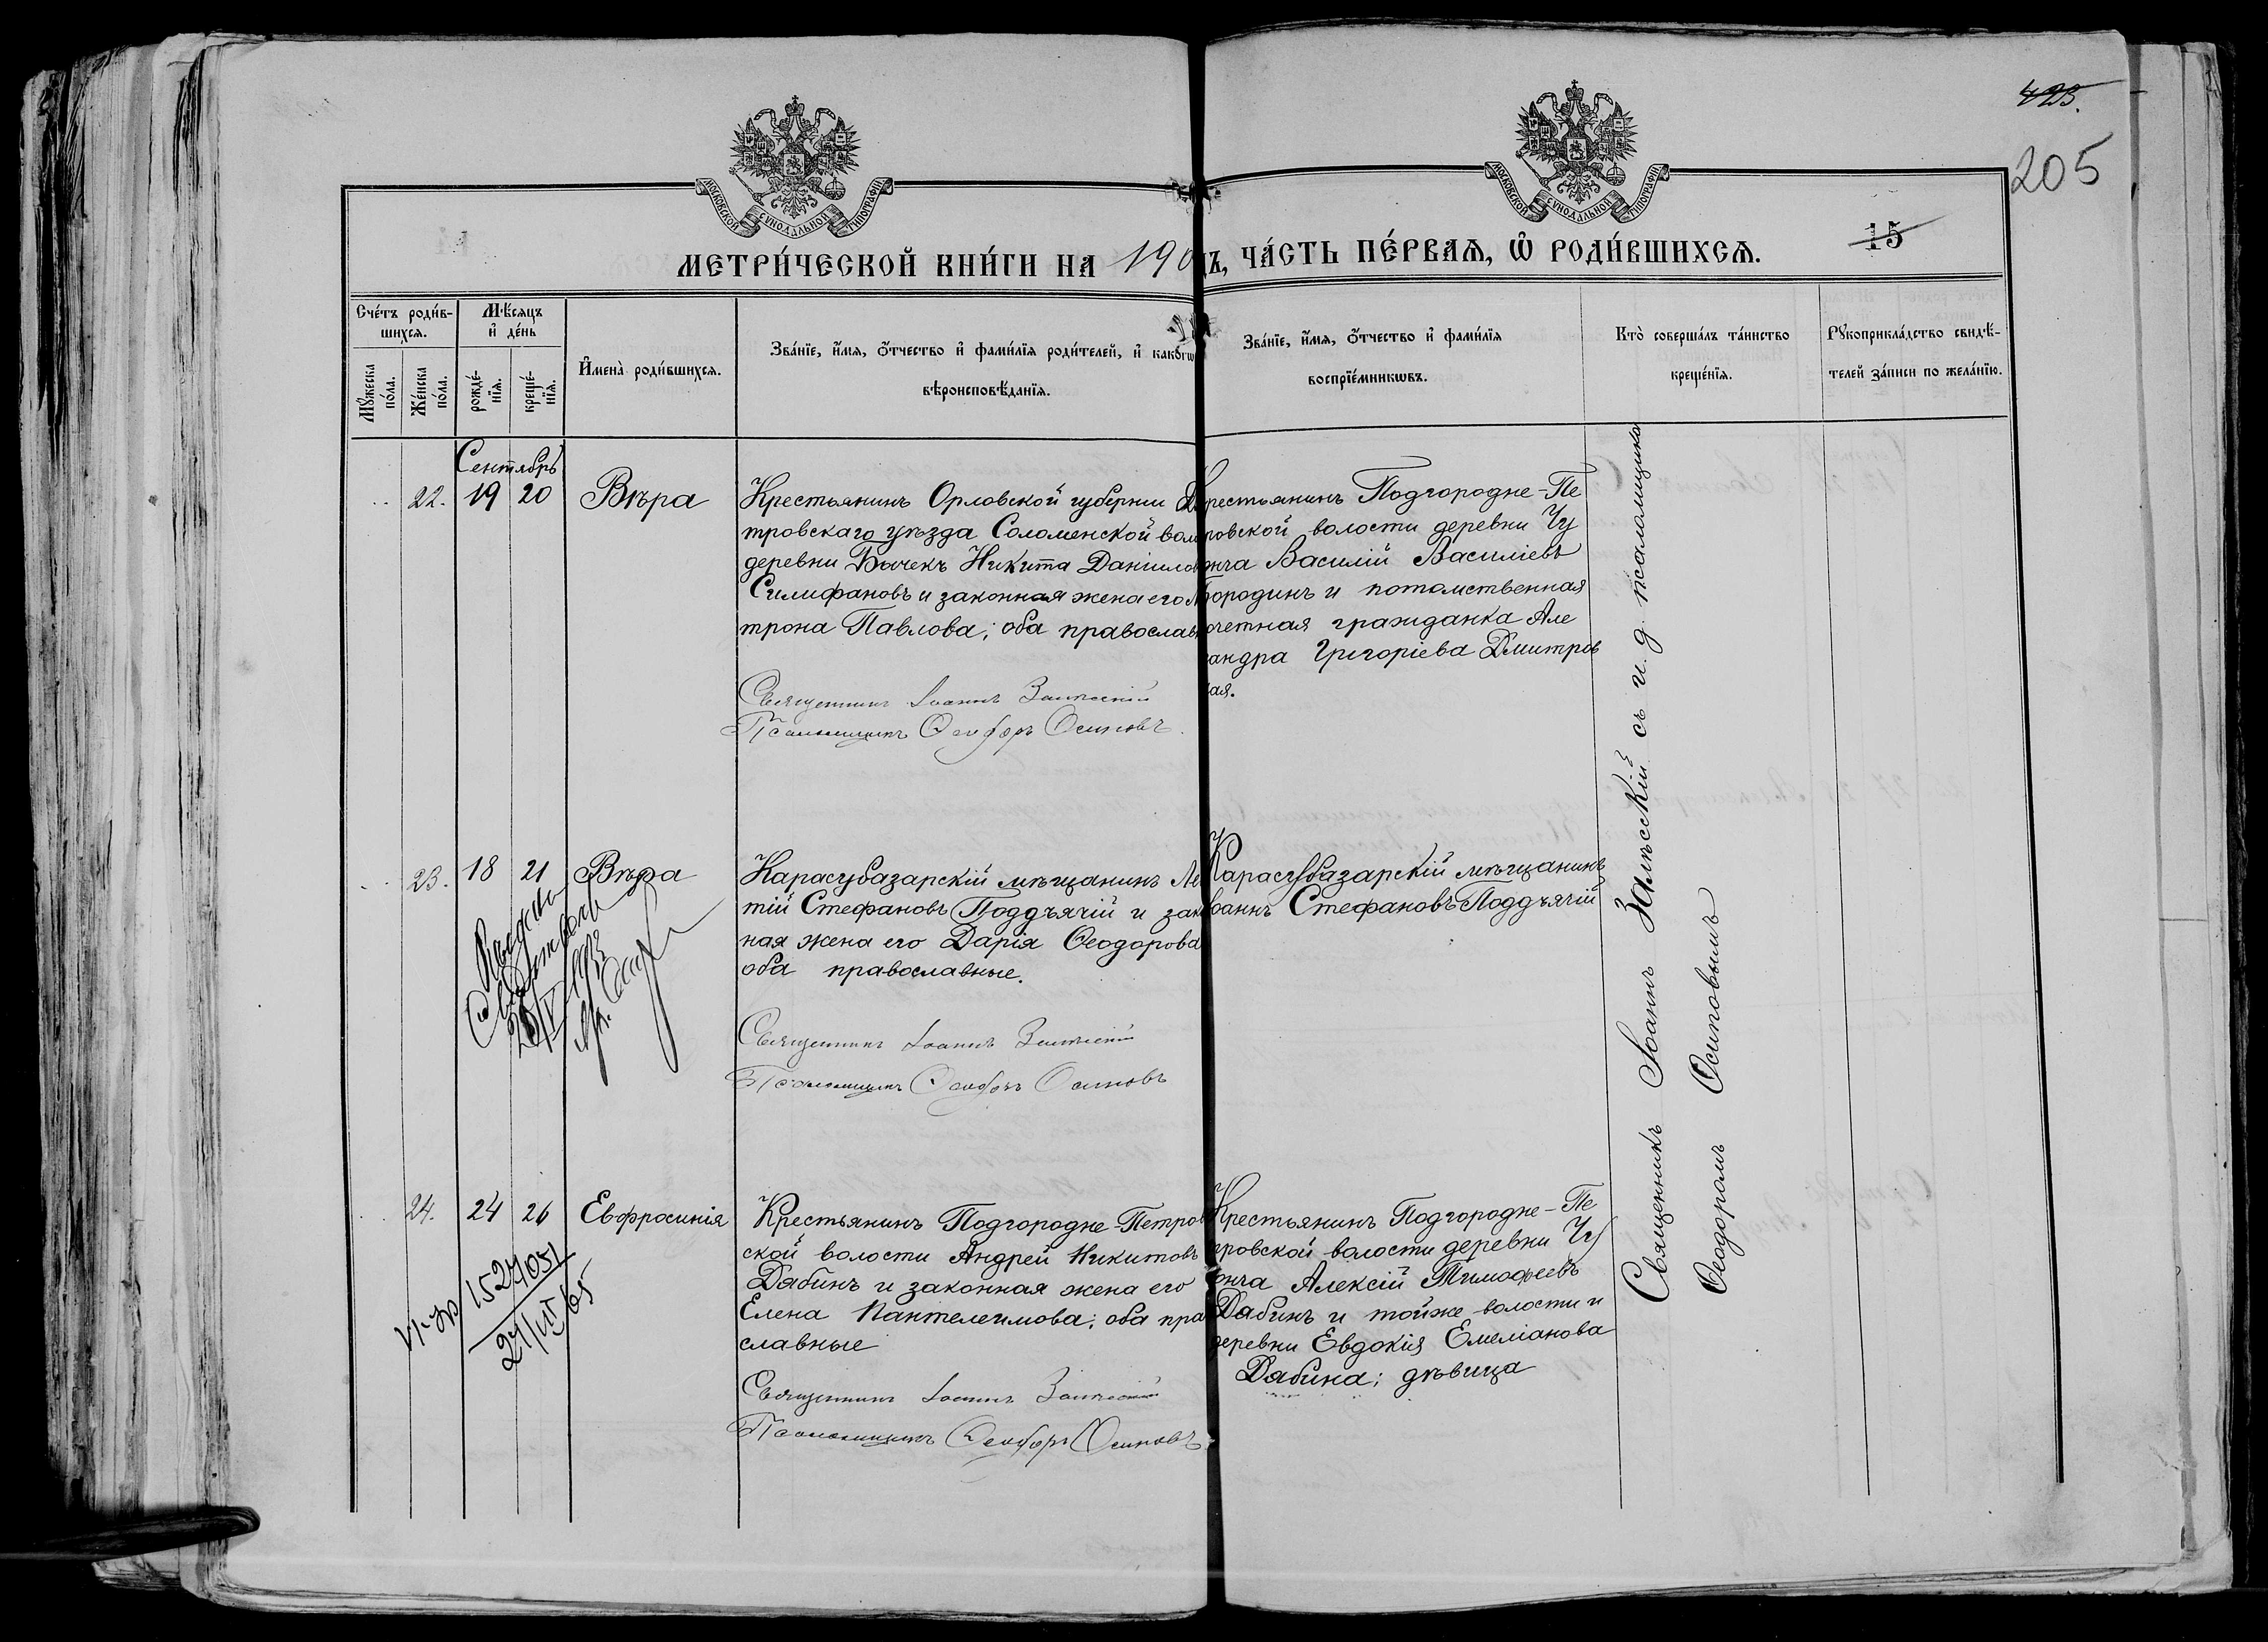 425.
205
МОСКОВСКОЙ СУНОДАЛЬНОЙ ТИПОГРАФІИ
МОСКОВСКОЙ СУНОДАЛЬНОЙ ТИПОГРАФІИ
МЕТРИ́ЧЕСКОЙ КНИ́ГИ НА 190
ЧА́СТЬ ПЕ́РВАѦ, Ѽ РОДИ́ВШИХСѦ.
15
Сче́тъ роди́в-
шихсѧ.
Мꙋ́жеска
по́ла.
Же́нска
по́ла.
Мѣ́сѧцъ
и҆ де́нь
рожде́-
нїѧ.
креще́-
нїѧ.
И҆мена̀ роди́вшихсѧ.
Зва́нїе, и҆́мѧ, о҆́тчество и҆ фами́лїѧ роди́телей, и҆ како́гѡ
вѣроисповѣ́данїѧ.
Зва́нїе, и҆́мѧ, о҆́тчество и҆ фами́лїѧ
воспрїе́мникѡвъ.
Кто̀ соверша́лъ та́инство
креще́нїѧ.
Рꙋкоприкла́дство свидѣ́-
телей за́писи по жела́нїю.
Сентябрь
22. 19 20 Вѣра
Крестьянинъ Орловской губерніи Д
тровскаго уѣзда Соломенской вол
деревни Бычекъ Никита Данилов
Силифановъ и законная жена его М
трона Павлова; оба православ
Священникъ Іоаннъ Залѣсскій
Псаломщикъ Ѳеодоръ Осиповъ.
рестьянинъ Подгородне-Пе
ровской волости деревни Чу
нча Василій Василіевъ
ородинъ и потомственная
очетная гражданка Але
андра Григоріева Дмитров
ая.
23. 18 21 Вѣра
Карасубазарскій мѣщанинъ Ле
тій Стефановъ Поддъячій и зак
ная жена его Дарія Ѳеодорова
оба православные.
Священникъ Іоаннъ Залѣсскій
Псаломщикъ Ѳеодоръ Осиповъ
Карасубазарскій мѣщанинъ
оаннъ Стефановъ Поддъячій
24. 24 26 Евфросинія
1527051
Крестьянинъ Подгородне-Петров
ской волости Андрей Никитовъ
Дябинъ и законная жена его
Елена Пантелеимова; оба пра
славные
Священникъ Іоаннъ Залѣсскій
Псаломщикъ Ѳеодоръ Осиповъ
Крестьянинъ Подгородне-Пе
тровской волости деревни Чу
онча Алексій Тимоѳеевъ
Дябинъ и тойже волости и
деревни Евдокія Емеліанова
Дябина; дѣвица
Священникъ Іоаннъ Залѣсскій съ и. д. псаломщика
Ѳеодоромъ Осиповымъ